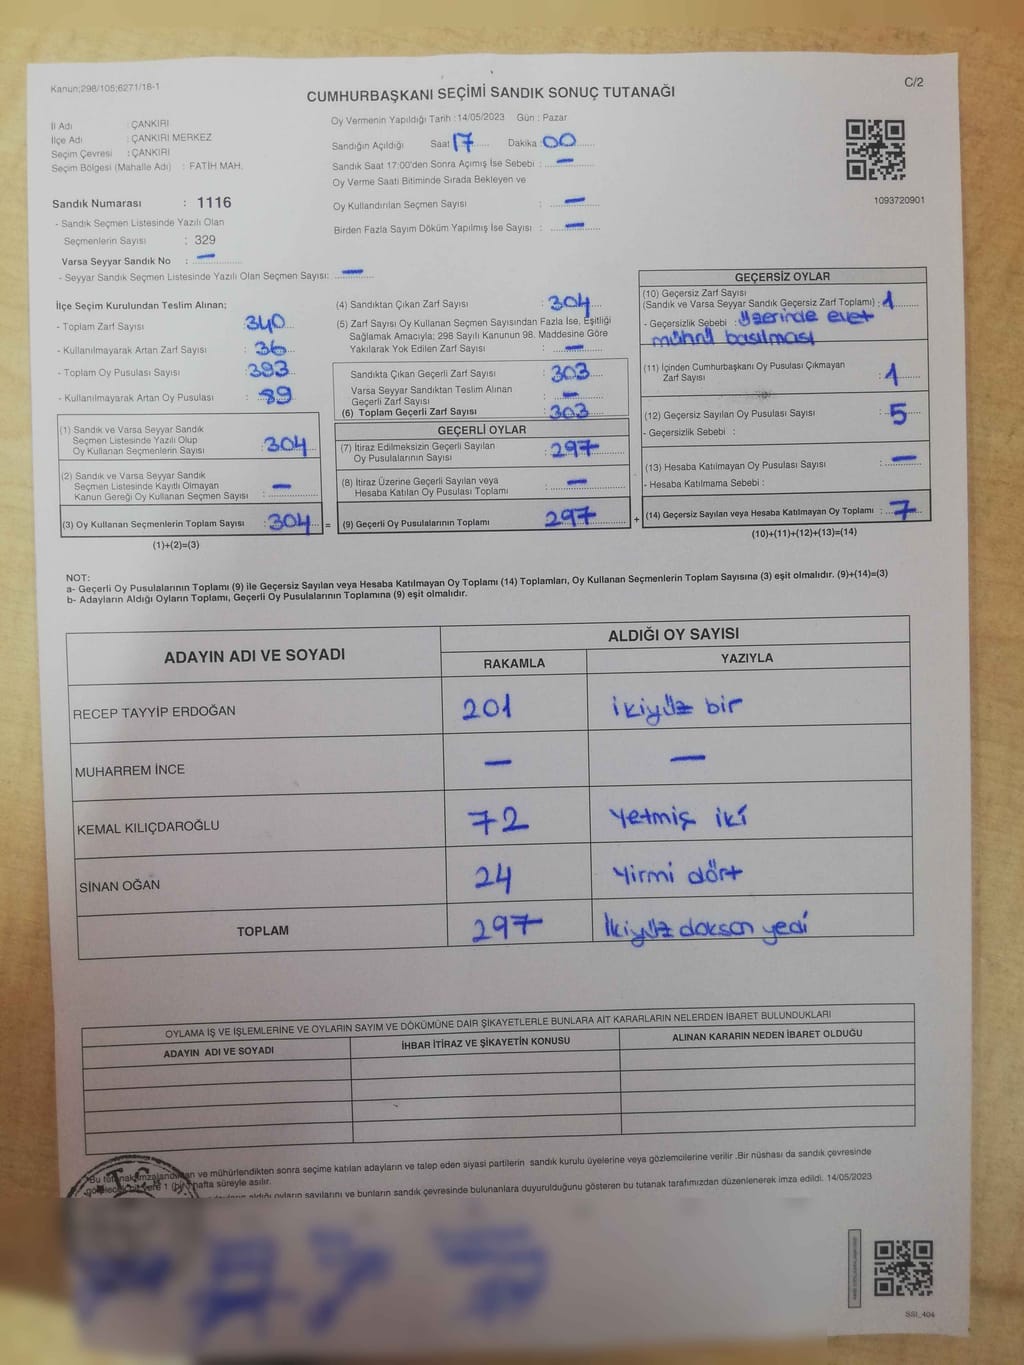 Kanun;298/105;6271/18-1
C/2
CUMHURBAŞKANI SEÇİMİ SANDIK SONUÇ TUTANAĞI
Oy Vermenin Yapıldığı Tarih :14/05/2023 Gün : Pazar
İl Adı : ÇANKIRI
İlçe Adı : ÇANKIRI MERKEZ
Seçim Çevresi : ÇANKIRI
Seçim Bölgesi (Mahalle Adı) : FATİH MAH.
Sandığın Açıldığı Saat 17 Dakika : 00
Sandık Saat 17:00'den Sonra Açımış İse Sebebi : —
Oy Verme Saati Bitiminde Sırada Bekleyen ve
Oy Kullandırılan Seçmen Sayısı : —
Birden Fazla Sayım Döküm Yapılmış İse Sayısı : —
1093720901
Sandık Numarası : 1116
- Sandık Seçmen Listesinde Yazılı Olan
Seçmenlerin Sayısı : 329
Varsa Seyyar Sandık No : —
- Seyyar Sandık Seçmen Listesinde Yazılı Olan Seçmen Sayısı: —
İlçe Seçim Kurulundan Teslim Alınan;
- Toplam Zarf Sayısı : 340
- Kullanılmayarak Artan Zarf Sayısı : 36
- Toplam Oy Pusulası Sayısı : 393
- Kullanılmayarak Artan Oy Pusulası : 89
(1) Sandık ve Varsa Seyyar Sandık
Seçmen Listesinde Yazılı Olup
Oy Kullanan Seçmenlerin Sayısı : 304
(2) Sandık ve Varsa Seyyar Sandık
Seçmen Listesinde Kayıtlı Olmayan
Kanun Gereği Oy Kullanan Seçmen Sayısı : —
(3) Oy Kullanan Seçmenlerin Toplam Sayısı : 304
(1)+(2)=(3)
(4) Sandıktan Çıkan Zarf Sayısı : 304
(5) Zarf Sayısı Oy Kullanan Seçmen Sayısından Fazla İse, Eşitliği
Sağlamak Amacıyla; 298 Sayılı Kanunun 98. Maddesine Göre
Yakılarak Yok Edilen Zarf Sayısı : —
Sandıkta Çıkan Geçerli Zarf Sayısı : 303
Varsa Seyyar Sandıktan Teslim Alınan
Geçerli Zarf Sayısı : —
(6) Toplam Geçerli Zarf Sayısı : 303
GEÇERLİ OYLAR
(7) İtiraz Edilmeksizin Geçerli Sayılan
Oy Pusulalarının Sayısı : 297
(8) İtiraz Üzerine Geçerli Sayılan veya
Hesaba Katılan Oy Pusulası Toplamı : —
= (9) Geçerli Oy Pusulalarının Toplamı 297
GEÇERSİZ OYLAR
(10) Geçersiz Zarf Sayısı
(Sandık ve Varsa Seyyar Sandık Geçersiz Zarf Toplamı) : 1
- Geçersizlik Sebebi : üzerinde evet
mührü basılması
(11) İçinden Cumhurbaşkanı Oy Pusulası Çıkmayan
Zarf Sayısı : 1
(12) Geçersiz Sayılan Oy Pusulası Sayısı : 5
- Geçersizlik Sebebi :
(13) Hesaba Katılmayan Oy Pusulası Sayısı : —
- Hesaba Katılmama Sebebi :
+ (14) Geçersiz Sayılan veya Hesaba Katılmayan Oy Toplamı : 7
(10)+(11)+(12)+(13)=(14)
NOT:
a- Geçerli Oy Pusulalarının Toplamı (9) ile Geçersiz Sayılan veya Hesaba Katılmayan Oy Toplamı (14) Toplamları, Oy Kullanan Seçmenlerin Toplam Sayısına (3) eşit olmalıdır. (9)+(14)=(3)
b- Adayların Aldığı Oyların Toplamı, Geçerli Oy Pusulalarının Toplamına (9) eşit olmalıdır.
ADAYIN ADI VE SOYADI
ALDIĞI OY SAYISI
RAKAMLA YAZIYLA
RECEP TAYYİP ERDOĞAN 201 ikiyüz bir
MUHARREM İNCE — —
KEMAL KILIÇDAROĞLU 72 Yetmiş iki
SİNAN OĞAN 24 Yirmi dört
TOPLAM 297 İkiyüz doksan yedi
OYLAMA İŞ VE İŞLEMLERİNE VE OYLARIN SAYIM VE DÖKÜMÜNE DAİR ŞİKAYETLERLE BUNLARA AİT KARARLARIN NELERDEN İBARET BULUNDUKLARI
ADAYIN ADI VE SOYADI İHBAR İTİRAZ VE ŞİKAYETİN KONUSU ALINAN KARARIN NEDEN İBARET OLDUĞU
Bu tutanak imzalandıktan ve mühürlendikten sonra seçime katılan adayların ve talep eden siyasi partilerin sandık kurulu üyelerine veya gözlemcilerine verilir .Bir nüshası da sandık çevresinde
bir yere 1 (bir) hafta süreyle asılır.
aldığı oyların sayılarını ve bunların sandık çevresinde bulunanlara duyurulduğunu gösteren bu tutanak tarafımızdan düzenlenerek imza edildi. 14/05/2023
T.C.
SSI_404